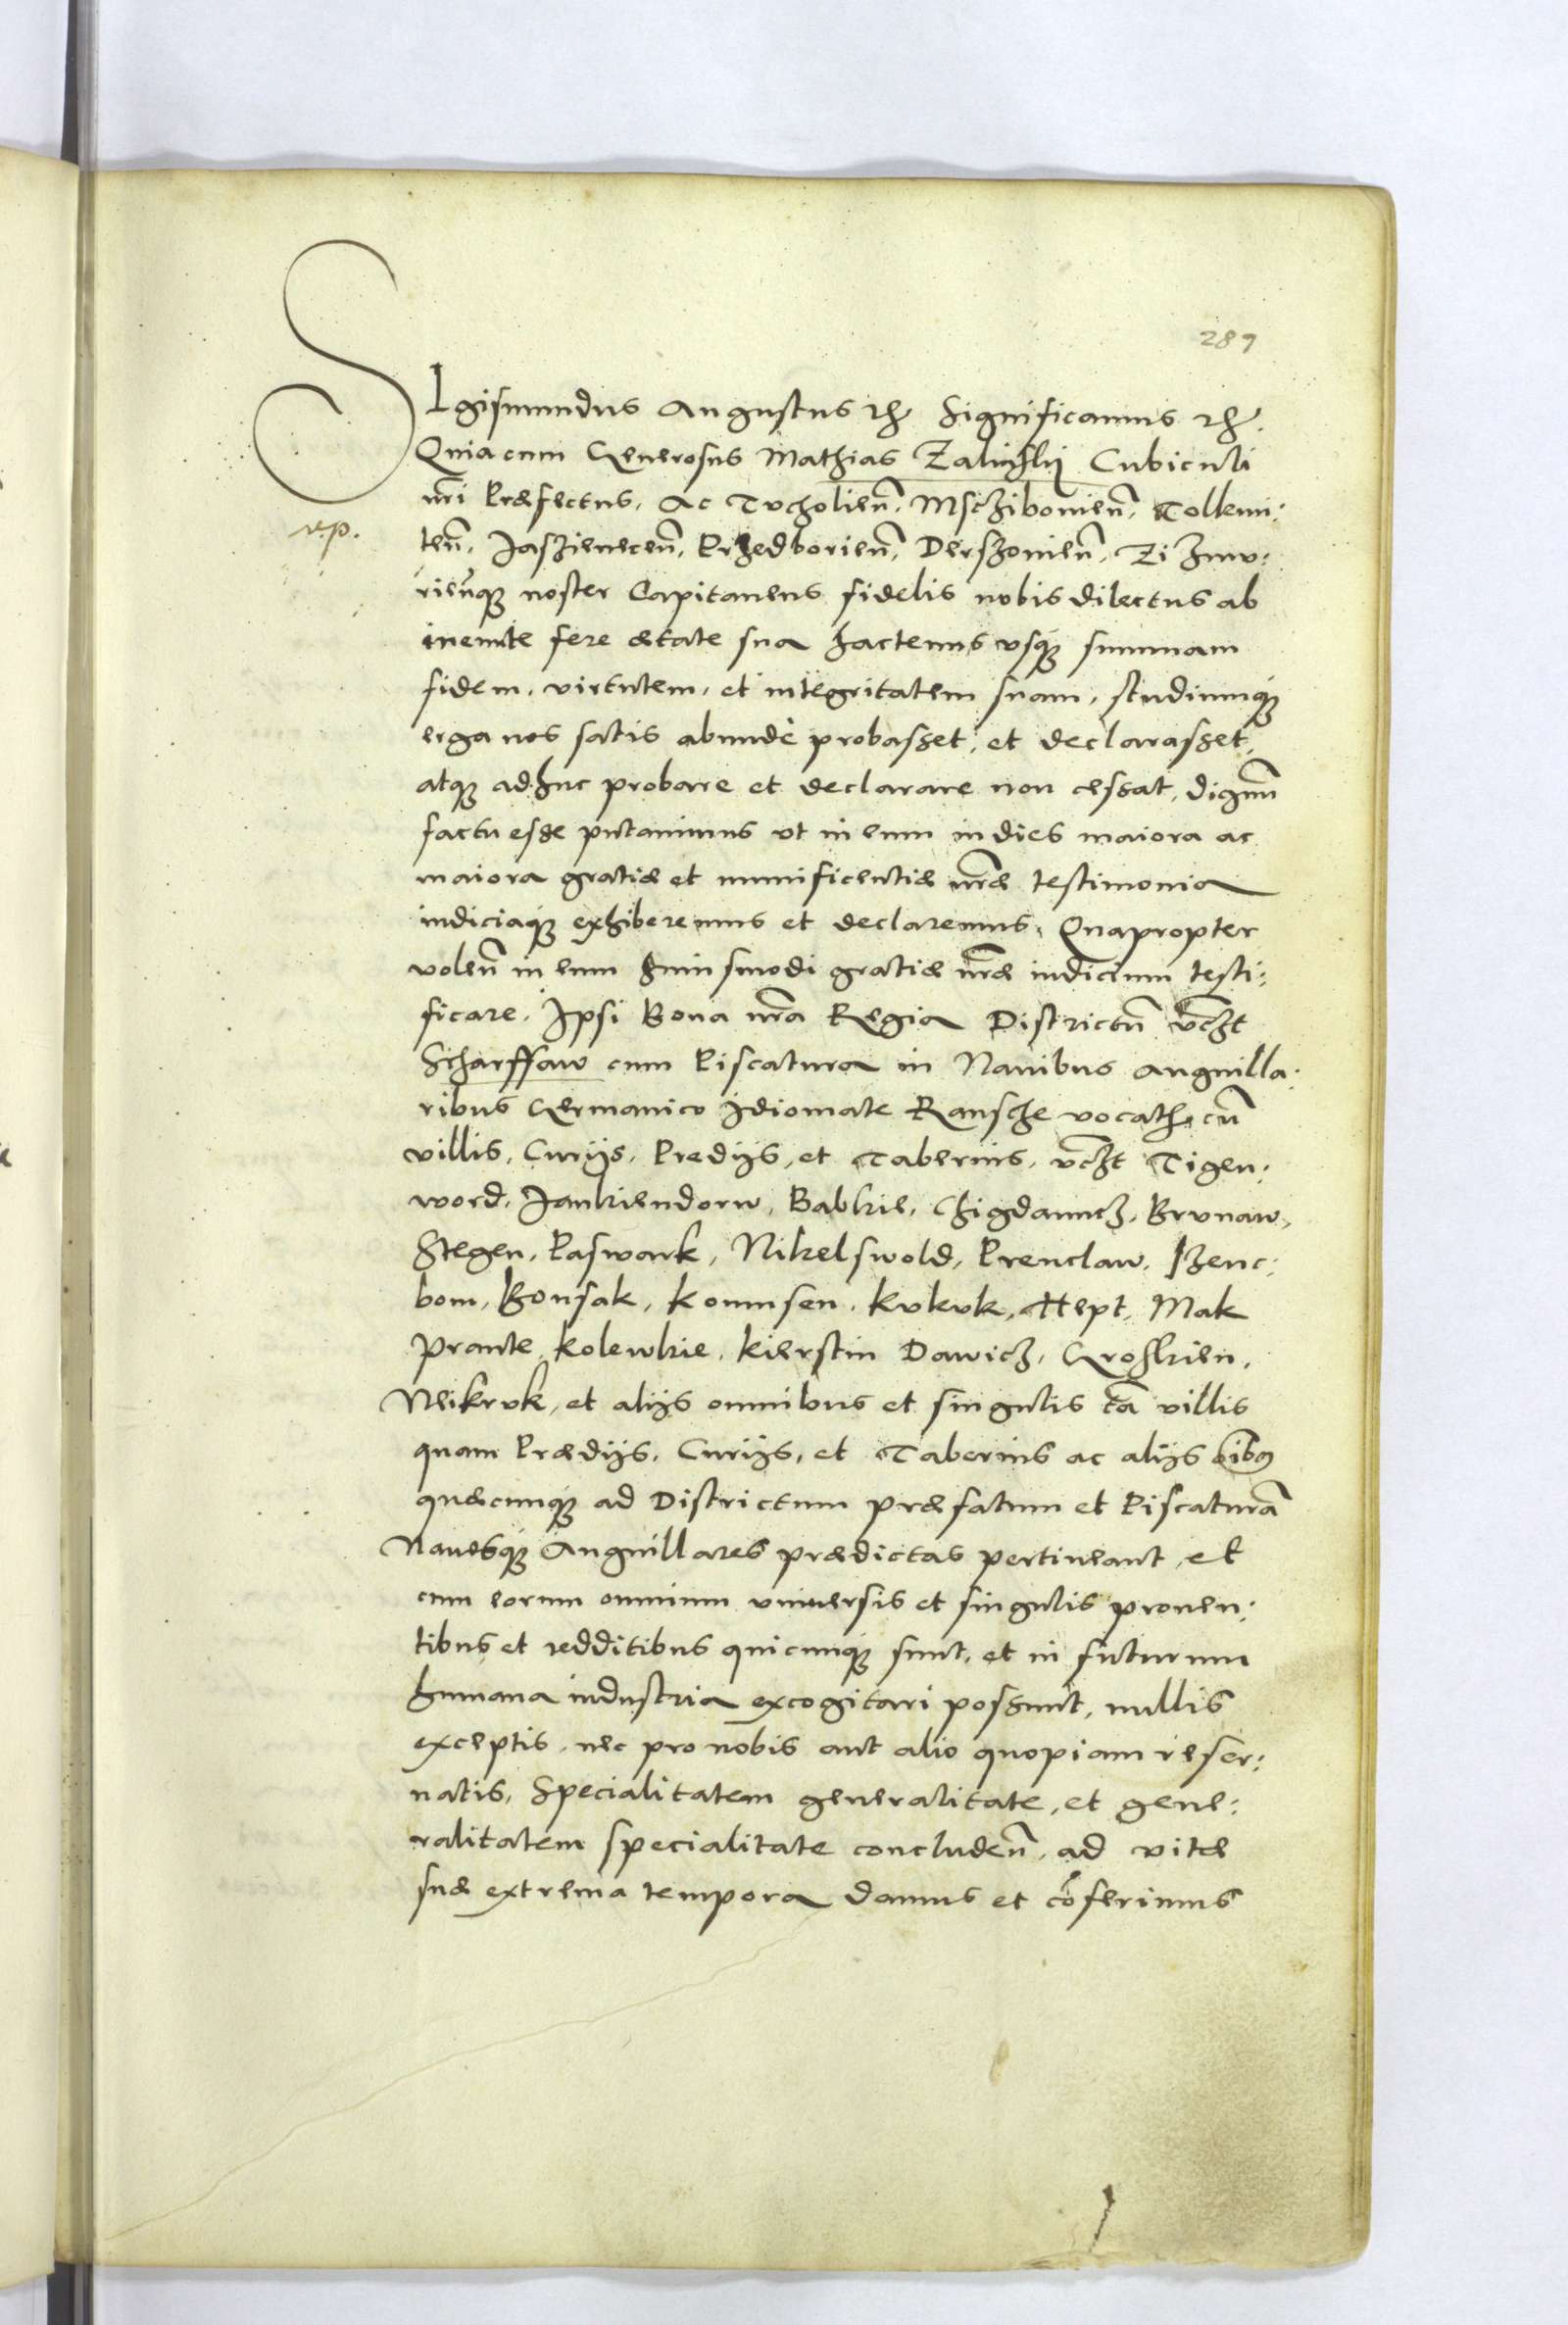 287
SIgismundus Augustus etc. Significamus etc.
Quia cum Generosus Mathias Zalinsky Cubiculi
nr̃i Præfectus, Ac Tucholien̄, Mscziboiuen̄, Tollemi:
v.p.
ten̄, Jaszienecen̄, Przedborien̄, Derszonien̄, Zizmo:
rien̄que noster Capitaneus fidelis nobis dilectus ab
ineunte fere ætate sua hactenus usque summam
fidem, virtutem, et integritatem suam, studiumque
erga nos satis abundè probasset, et declarasset,
atque adhuc probare et declarare non cessat, dignum̄
factu esse putauimus ut in eum in dies maiora ac
maiora gratiæ et munificentiæ nr̃æ testimonia
indiciaque exhiberemus et declaremus, Quapropter
volen̄ in eum huiusmodi gratiæ nr̃æ indicium testi:
ficare, Ipsi Bona nr̃a Regia Districtū vc̃zt
Scharffaw cum Piscatura in Nauibus anguilla:
ribus Germanico Idiomate Rausche vocatis, cū
villis, Curijs, Predijs, et Tabernis, vc̃zt Tigen:
word, Jankiendorw, Babkie, Chigdanncz, Brunaw,
Stegen, Paswark, Nikelswold, Prenclaw, Szenc:
bom, Bonsak, Koumsen, Kukuk, Hept, Mak
Prante, Kolewkie, Kierstin Dawicz, Groskien,
Neikruk, et alijs omnibus et singulis tā villis
quam Prædijs, Curijs, et Tabernis ac alijs oībus
quæcunque ad Districtum præfatum et Piscaturā
Nauesque Anguillares prædictas pertineant, et
cum eorum omnium vniuersis et singulis prouen:
tibus et redditibus quicunque sunt, et in futurum
humana industria excogitari possunt, nullis
exceptis, nec pro nobis aut alio quopiam reser:
uatis, Specialitatem generalitate, et gene:
ralitatem specialitate concluden̄, ad vitæ
suæ extrema tempora damus et cōferimus